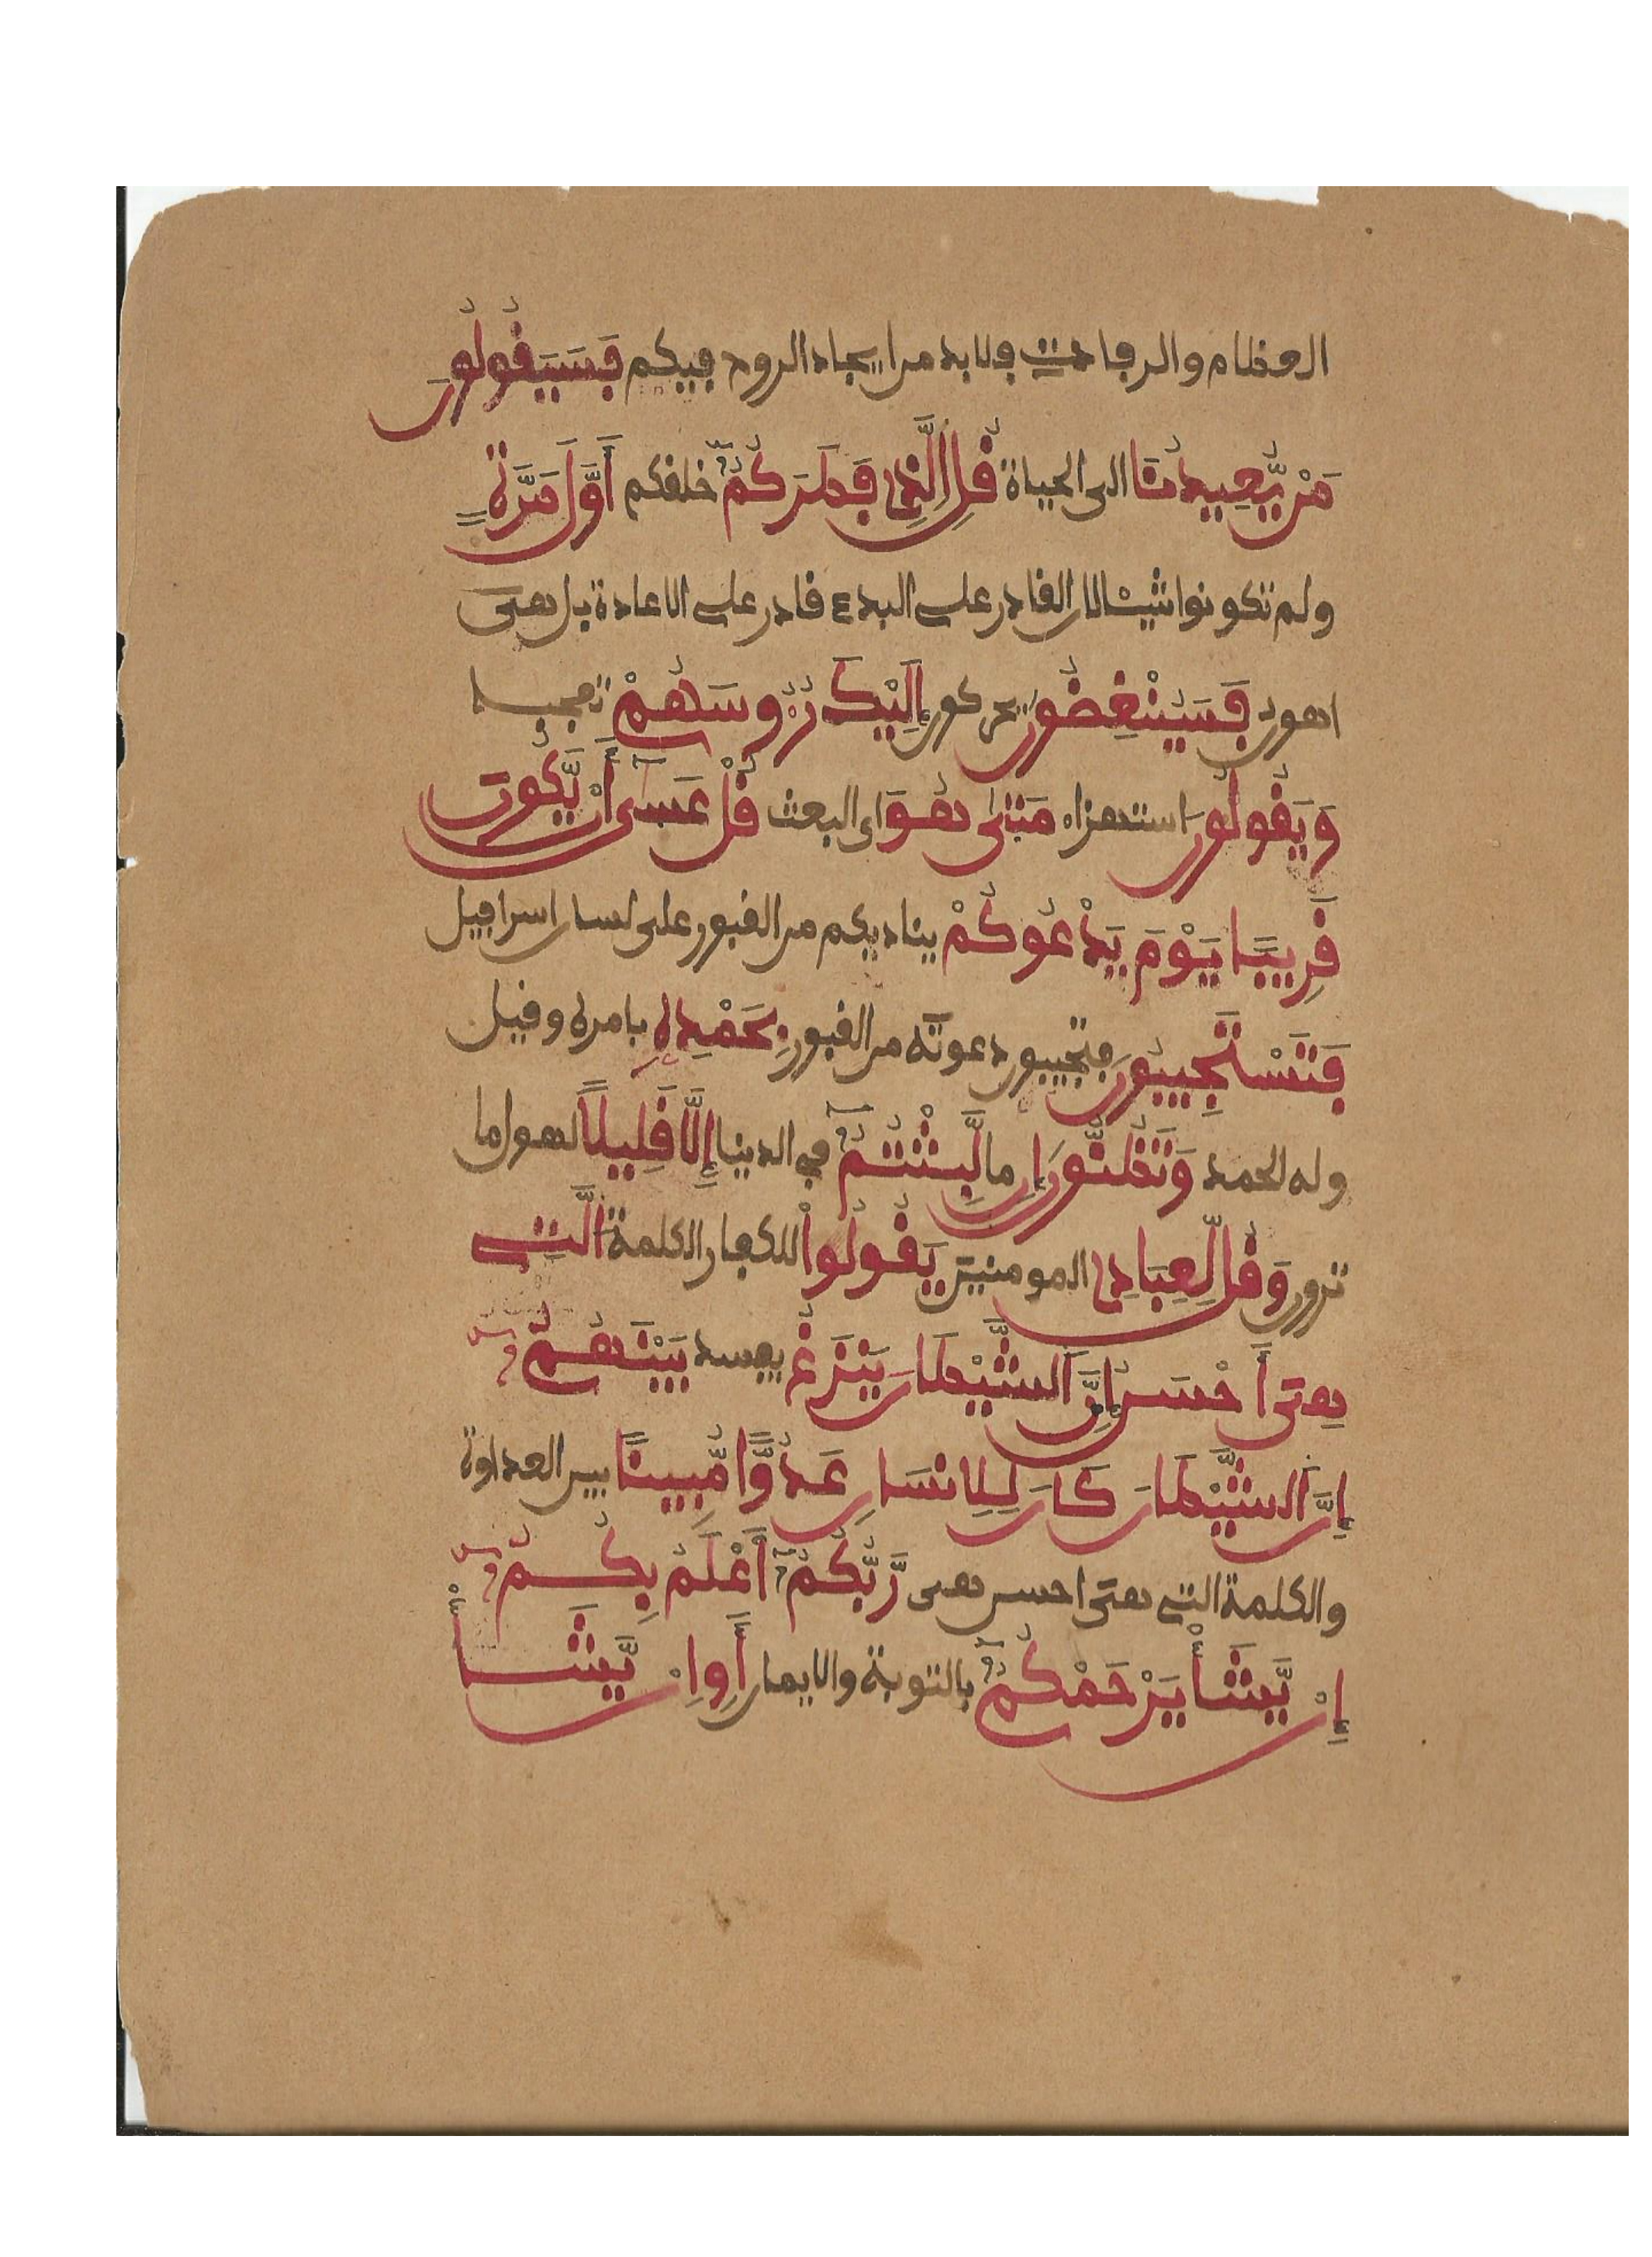 العظام والرفات فلا بد من ايجاد الروح فيكم فَسَيَقُولُونَ
مَنْ يُّعِيدُنَا الى الحياة قُلِ اِ۬لَّذِى فَطَرَكُمُۥٓ خلقكم أَوَّلَ مَرَّةٍ
ولم تكونوا شيئا لان القادر على البدء قادر على الاعادة بل هى
اهون فَسَيُنْغِضُونَ يحركون إِلَيْكَ رُءُوسَهُمْ تعجبا
وَيَقُولُونَ استهزاء مَتَىٰ هُوَ اى البعث قُلْ عَسَىٰٓ أَنْ يَّكُونَ
قَرِيبًا يَوْمَ يَدْعُوكُمْ يناديكم من القبور على لسان اسرافيل
فَتَسْتَجِيبُونَ فتجيبون دعوته من القبور بِحَمْدِهِ بامره وقيل
وله الحمد وَتَظُنُّونَ إِن ما لَّبِثْتُمُۥٓ في الدينا إِلَّا قَلِيلًا لهول ما
ترون وَقُل لِّعِبَادِى المومنين يَقُولُوا۟ للكفار الكلمة اَلَّتِى
هِىَ أَحْسَنُ إِنَّ اَلشَّيْطَانَ يَنزَغُ يفسد بَيْنَهُمُۥٓ
إِنَّ اَلشَّيْطَانَ كَانَ لِلِانسَانِ عَدُوًّا مُّبِينًا بين العداوة
والكلمة التي هى احسن هى رَّبُّكُمُۥٓ أَعْلَمُ بِكُمُۥٓ
إِنْ يَّشَأْ يَرْحَمْكُمُۥٓ بالتوبة والايمان أَوِ انْ يَّشَأْ